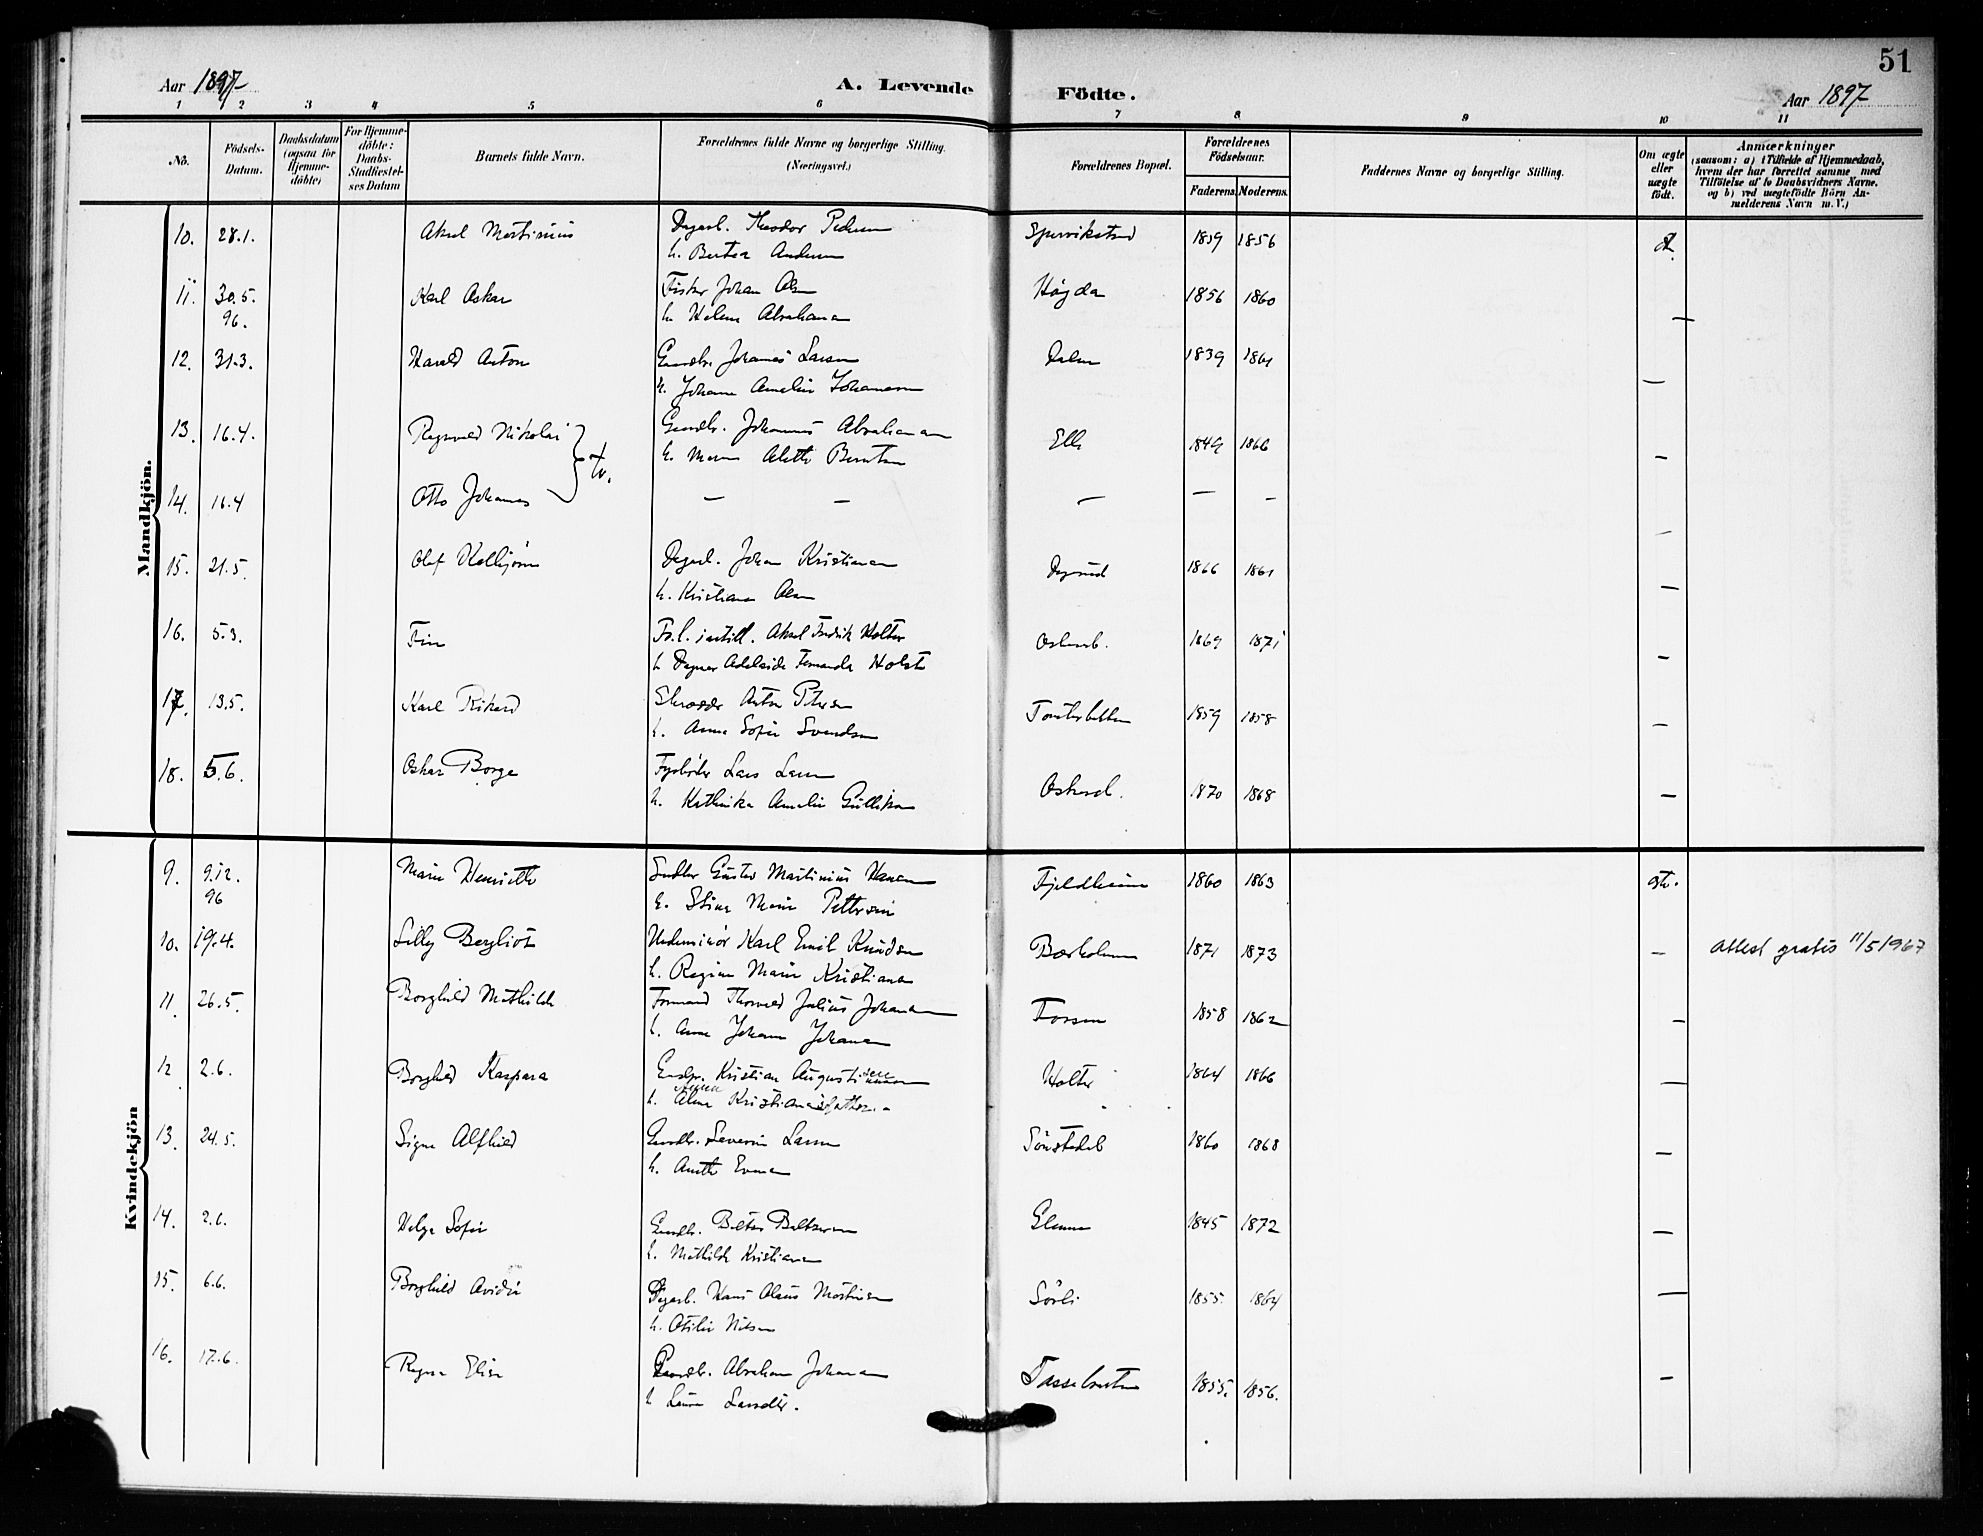 51
Aar 1897
A. Levende Födte.
Aar 1897
1 2 3 4 5 6 7 8 9 10 11
No.
Födsels-Datum.
Daabsdatum (ogsaa for Hjemme-döbte)
For Hjemme-döbte: Daabs-Stadfæstel-ses Datum
Barnets fulde Navn.
Forældrenes fulde Navne og borgerlige Stilling. (Næringsvei.)
Forældrenes Bopæl.
Forældrenes Födselsaar.
Faderens. Moderens.
Faddernes Navne og borgerlige Stilling.
Om ægte eller uægte födt.
Anmærkninger
(saasom: a) i Tilfælde af Hjemmedaab, hvem der har forrettet samme med Tilföielse af to Daabsvidners Navne, og b) ved uægtefödte Börn An-melderens Navn m. V.)
Mandkjön.
10. 28.1. Aksel Martinius Dagarb. Theodor Pedersen 1859 1856
h. Berthea Andersen
11. 30.5. 96. Karl Oskar Fisker Johan Olsen Högda 1856 1860 —
h. Helene Abrahamsen
12. 31.3. Harald Anton Johannes Larsen Dalen 1839 1861 —
h. Johanne Amalie Johannesen
13. 16.4. Ragnvald Nikolai } tv. Gaardbr. Johannes Abrahamsen Elle 1849 1866 —
h. Maren Alette Berntsen
14. 16.4 Otto Johannes — — — — — —
15. 21.5. Olaf Dagarb. Johan Kristiansen 1866 1861 —
h. Kristiane Olsen
16. 5.3. Finn Aksel Fredrik Holter 1869 1871 —
h. Dagmar Adelaide Fernanda Holst
17. 13.5. Karl Rikard Anton Petersen 1859 1858 —
h. Anna Sofie Svendsen
18. 5.6. Oskar Borge Fyrböter Lars Larsen 1870 1868 —
h. Kathinka Amalie Gulliksen
Kvindekjön
9. 9.12. 96 Marie Henriette Gustav Martinius Hansen Fjeldheim 1860 1863 ægte.
h. Stina Marie Pettersen
10. 19.4. Lilly Bergliot Karl Emil Knudsen 1871 1873 — Attest gratis 11/5 1967
h. Regine Marie Kristiansen
11. 26.5. Borghild Mathilde Formand Thorvald Julius Johansen Fossen 1858 1862 —
h. Anne Johanne Johansen
12. 2.6. Borghild Kaspara Gaardbr. Kristian Augustinussen Holter 1864 1866 —
h. Kristiansdatter
13. 24.5. Signe Alfhild Gaardbr. Severin Larsen 1860 1868 —
h. Anette Evensen
14. 2.6. Helga Sofie Gaardbr. Baltzersen Glenne 1845 1872 —
h. Mathilde Kristiansen
15. 6.6. Borghild Avidie Dagarb. Hans Olaus Martinsen Sörli 1855. 1864 —
h. Otilie Nilsen
16. 17.6. Ragna Elise Gaardbr. Abraham Johansen 1855. 1856. —
h. Laura